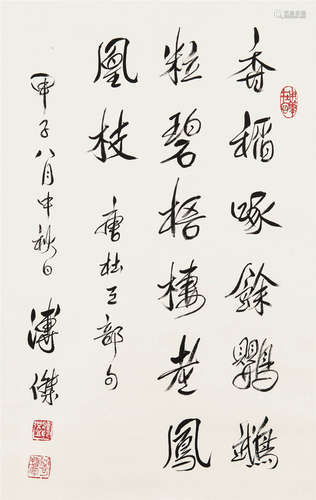 香稻啄餘鸚鵡
粒碧梧棲老鳳
凰枝
唐杜工部句
甲子八月中秋日
溥傑